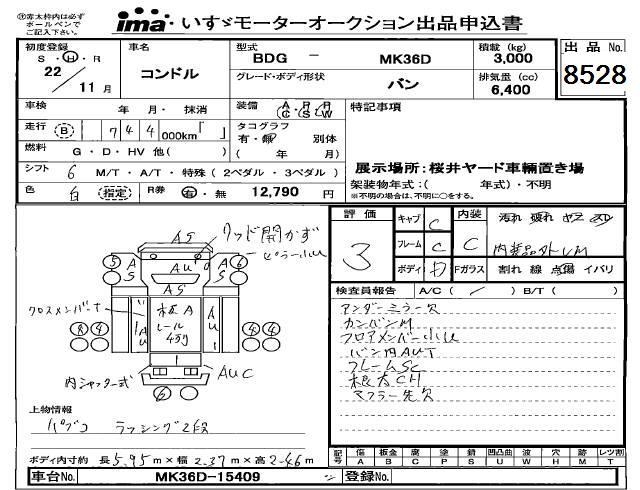 ㊟赤太枠内は必ず
ボールペンで
ご記入下さい。
ima いすゞモーターオークション出品申込書
初度登録
S・H・R
22
11 月
車名
コンドル
型式
BDG － MK36D
グレード・ボディ形状
バン
積載 (kg)
3,000
排気量 (cc)
6,400
出品 No.
8528
車検 年 月・ 抹消
走行 B 7 4 4 000km「 」
燃料 G・D・HV 他( )
シフト 6 M/T・A/T・特殊 ( 2ペダル・3ペダル )
色 白 (指定) R券 有・無 12,790 円
装備 A・P・P
C S W
タコグラフ
有・無 別体
( 年 月)
特記事項
展示場所：桜井ヤード車輌置き場
架装物年式：( 年式)・不明
※不明の場合は、不明に○をする。
ウッド開かず
ピラー小U
AS
AU
AS
AS
AS
クロスメンバーナ
AU
板A
レール
4列
AU
AUC
内シャッター式
5
6
8
4
4
4
6
上物情報
パブコ ラッシング2段
ボディ内寸約 長 5.95 m×幅 2.37 m×高 2.46 m
評価
3
キャブ C
フレーム C
ボディ D
内装 C
汚れ 破れ ヤニ スレ
Fガラス 割れ 線 点傷 イバリ
検査員報告 A/C ( / ) B/T ( )
アンダーミラー欠
カンバンM
フロアメンバー小U
バン内AUT
フレームSC
根太CH
マフラー先欠
記号
傷 A
板金 B
腐 C
塗 P
錆 S
凹凸曲 U
波 W
穴 H
跡 M
レツ割 T
車台No. MK36D-15409
登録No.